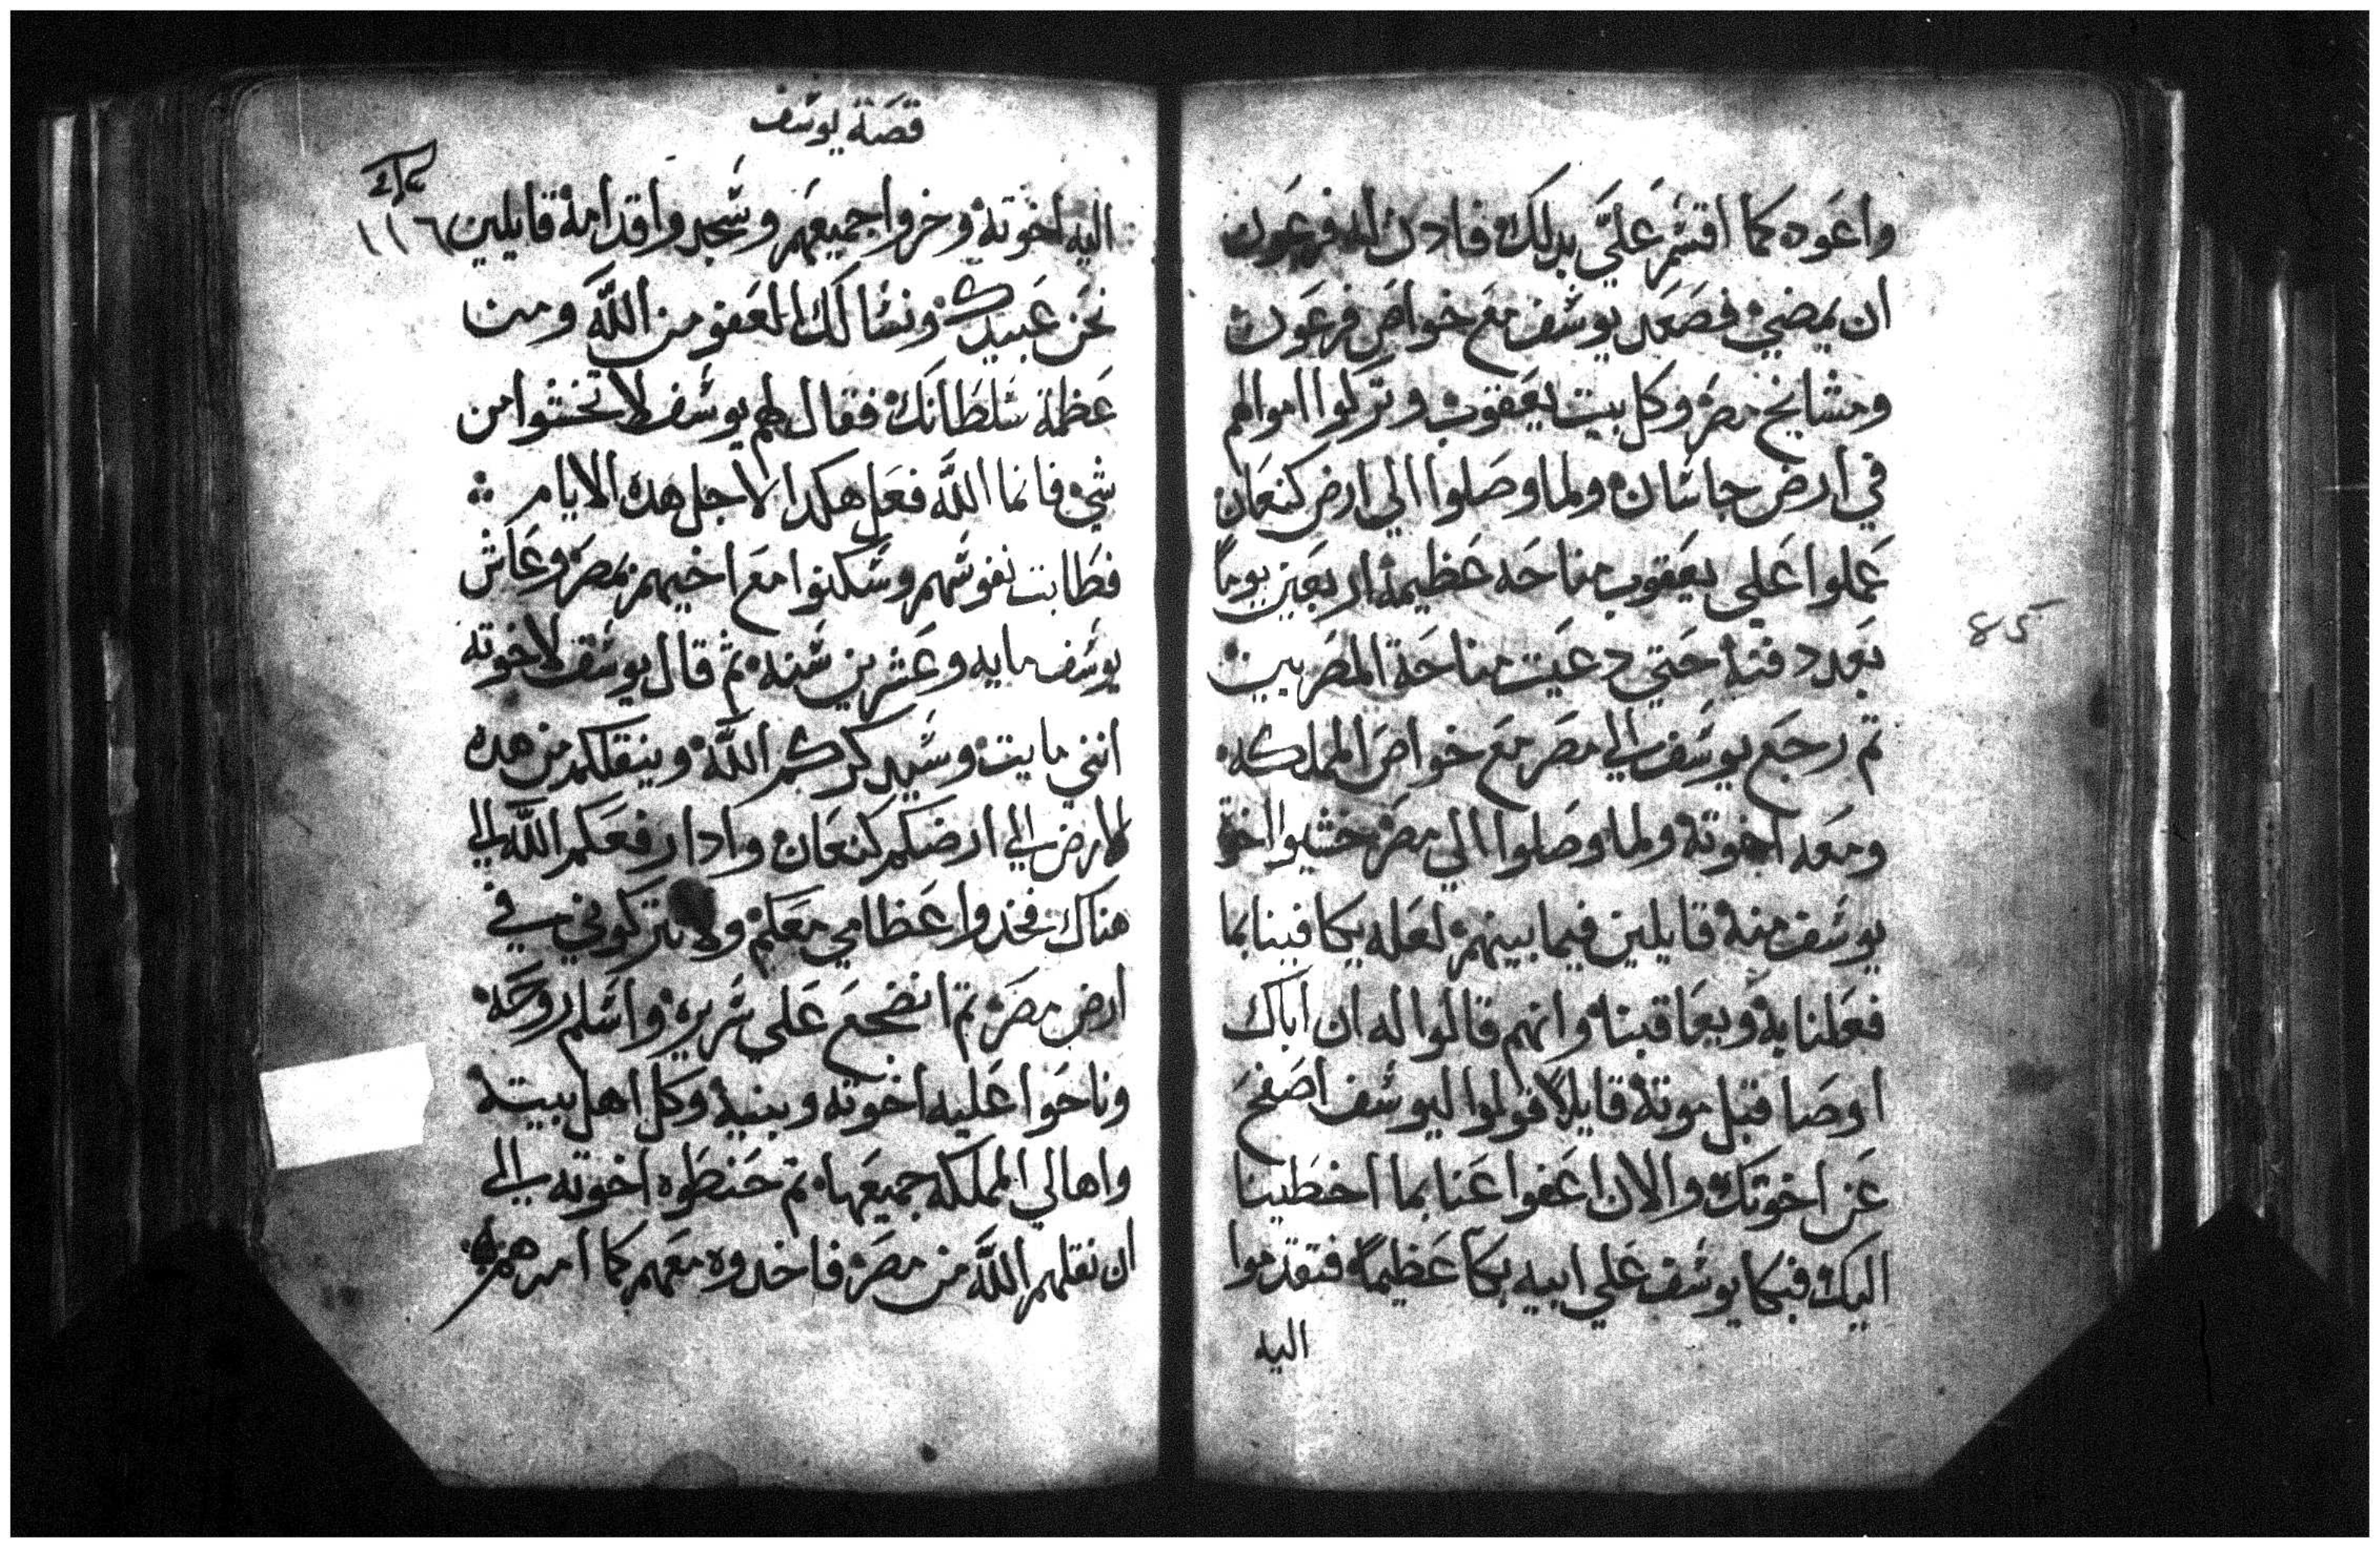 واعوده كما اقسم علي بدلك فادن له فرعون
ان يمضي فصعد يوسف مع خواص فرعون
ومشايخ مصر وكل بيت يعقوب وتركوا اموالهم
في ارض جاشان ولما وصلوا الي ارض كنعان
عملوا علي يعقوب مناحه عظيمة اربعين يوما
بعد دفنه حتي دعيت مناحة المصريين
تم رجع يوسف الي مصر مع خواص المملكه
ومعه اخوته ولما وصلوا الي مصر خشيوا اخوة
يوسف منه قايلين فيما بينهم لعله يكافينا بما
فعلنا به ويعاقبنا وانهم قالوا له ان اباك
اوصا قبل موته قايلا قولوا ليوسف اصفح
عن اخوتك والان اعفوا عنا بما اخطينا
اليك فبكا يوسف علي ابيه بكا عظيما فتقدموا
اليه
85
قصة يوسف
اليه اخوته وخروا جميعهم وسجدوا قدامه قايلين
١١٦
نحن عبيدك ونسالك العفو من الله ومن
عظمة سلطانك فقال لهم يوسف لا تخشوا من
شي فانما الله فعل هكدا لاجل هده الايام
فطابت نفوسهم وسكنوا مع اخيهم بمصر وعاش
يوسف مايه وعشرين سنه ثم قال يوسف لاخوته
انني مايت وسيدكركم الله وينقلكم من هده
الارض الي ارضكم كنعان وادا رفعكم الله الي
هناك فخدوا عظامي معكم ولا تتركوني في
ارض مصر تم انضجع علي سريره واسلم روحه
وناحوا عليه اخوته وبنيه وكل اهل بيته
واهالي المملكه جميعها تم حنطوه اخوته الي
ان نقلهم الله من مصر فاخدوه معهم كما امرهم